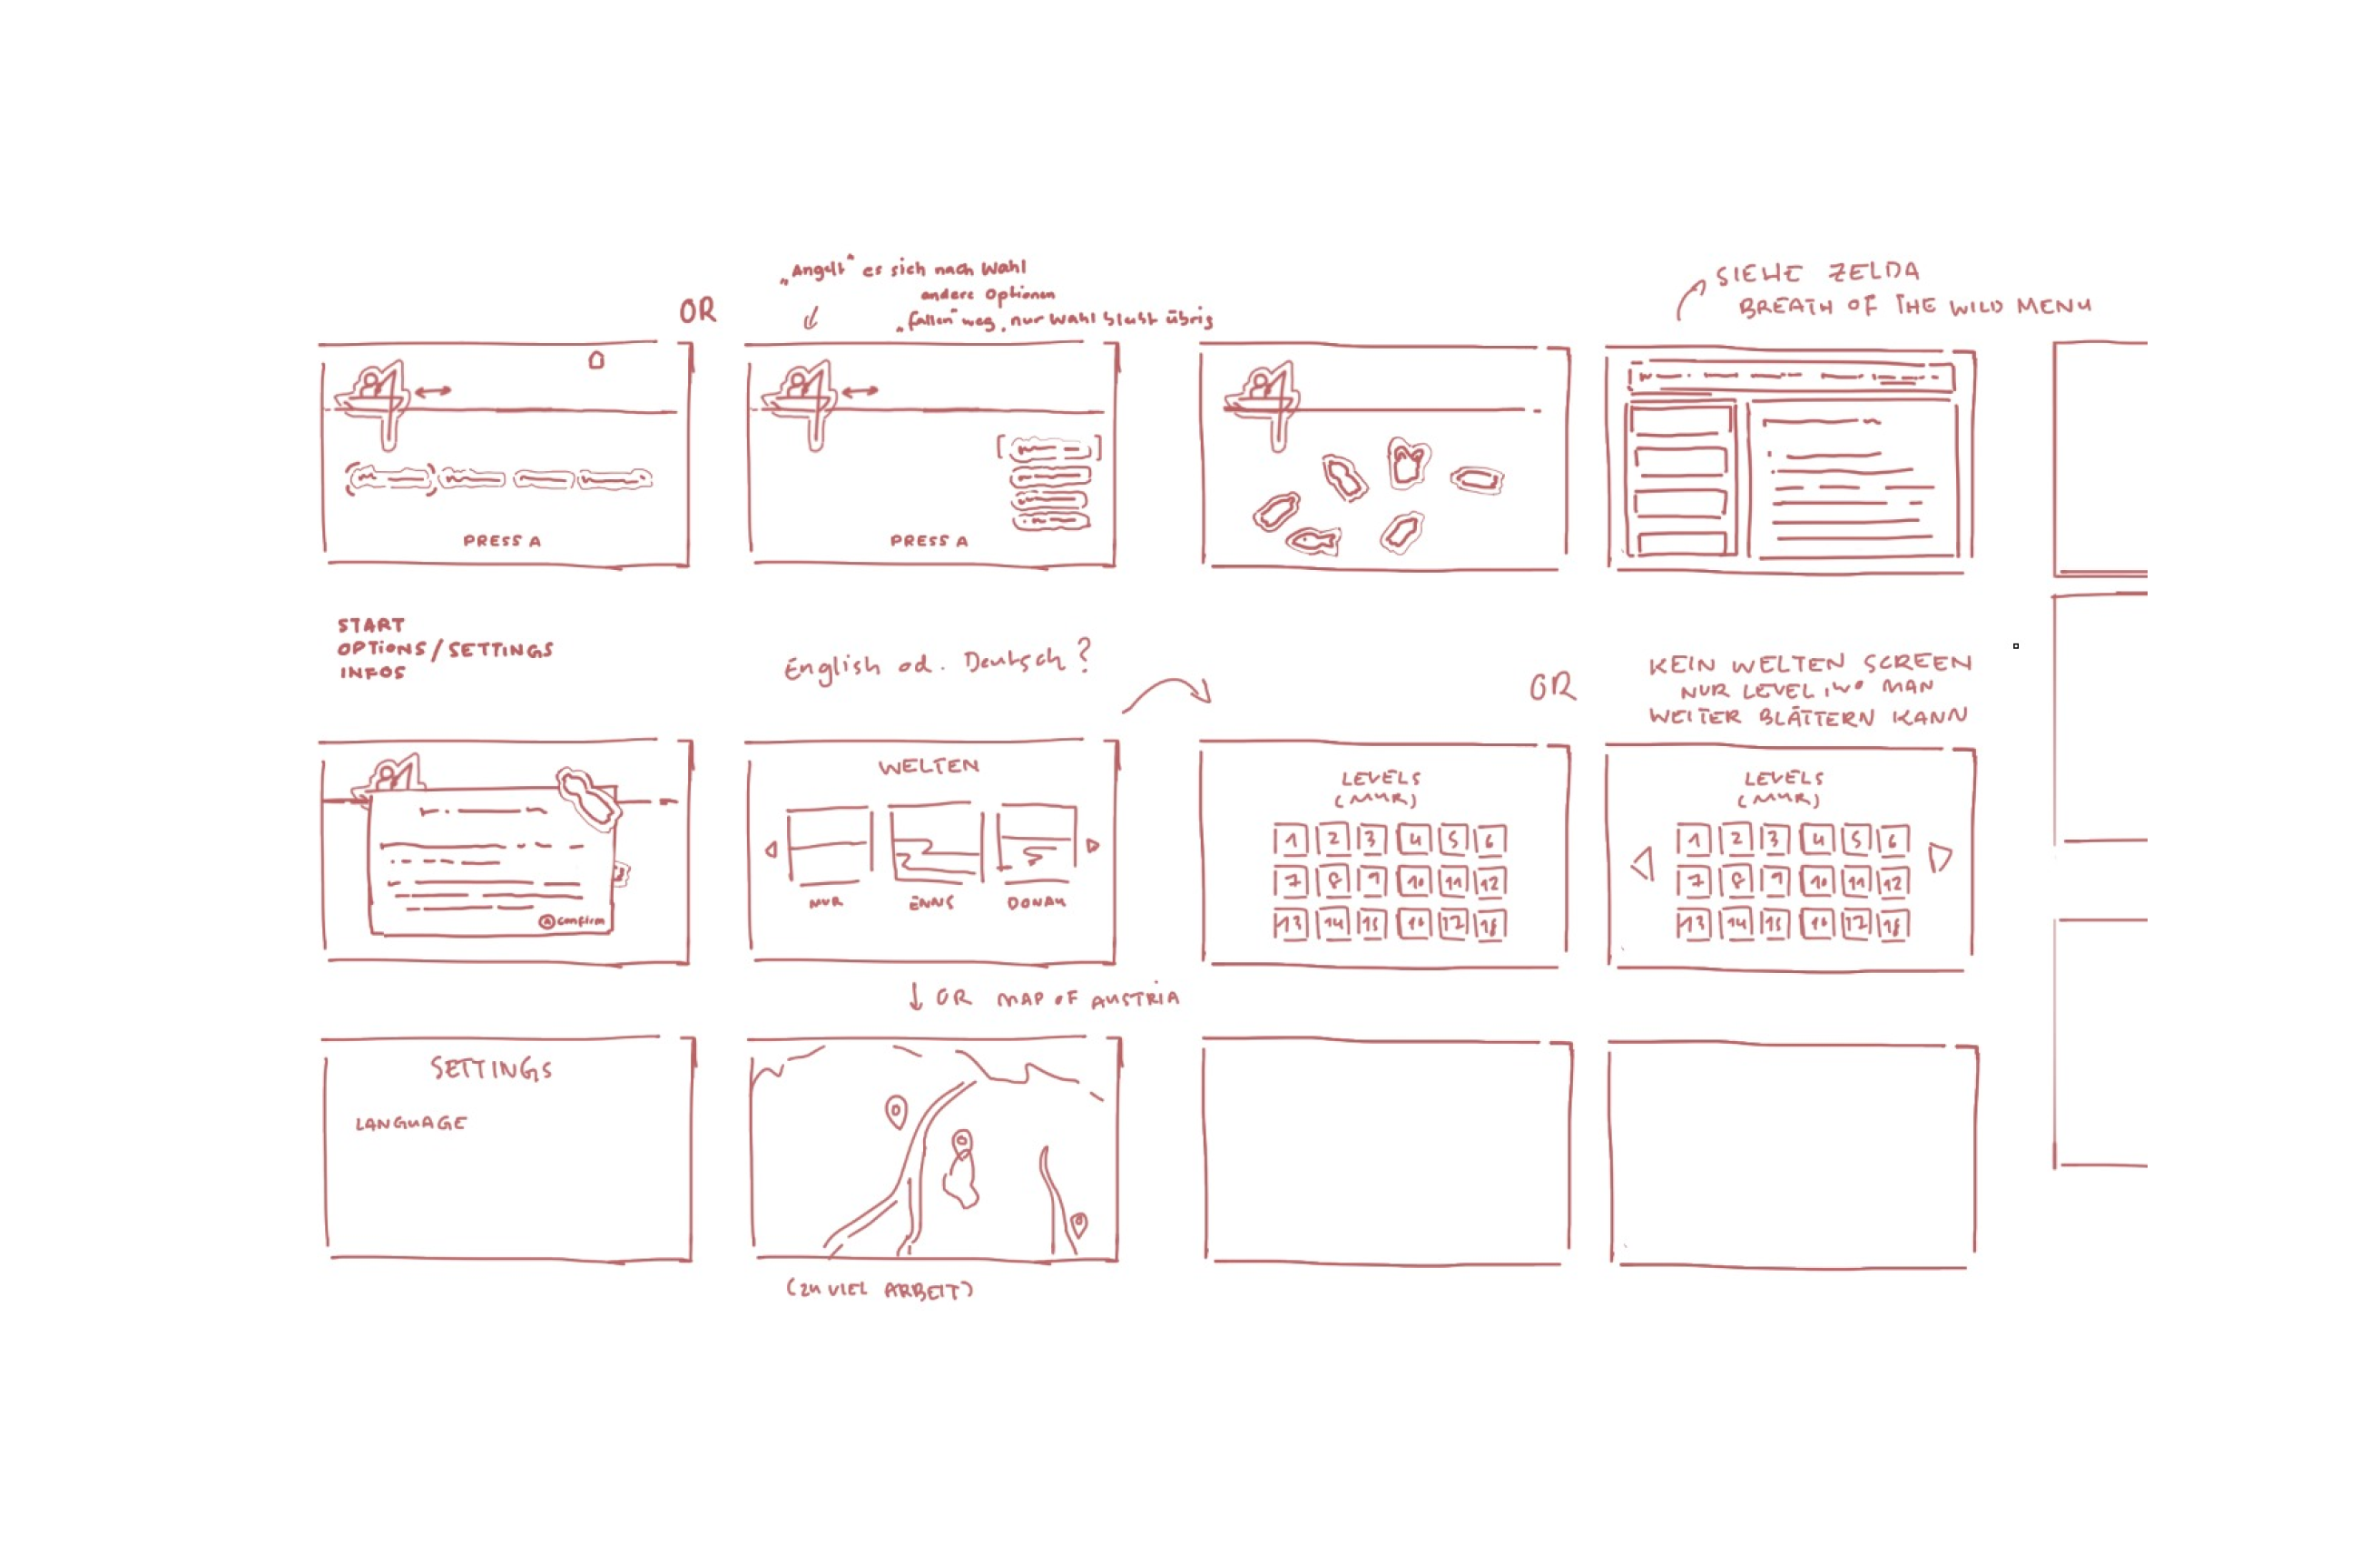 „Angelt“ es sich nach Wahl
andere Optionen
„fallen“ weg, nur Wahl bleibt übrig
OR
SIEHE ZELDA
BREATH OF THE WILD MENU
PRESS A
PRESS A
START
OPTIONS/SETTINGS
INFOS
English od. Deutsch?
OR
KEIN WELTEN SCREEN
NUR LEVEL, WO MAN
WEITER BLÄTTERN KANN
A confirm
WELTEN
MUR ENNS DONAU
LEVELS
(MUR)
1 2 3 4 5 6
7 8 9 10 11 12
13 14 15 16 17 18
LEVELS
(MUR)
1 2 3 4 5 6
7 8 9 10 11 12
13 14 15 16 17 18
OR MAP OF AUSTRIA
SETTINGS
LANGUAGE
(ZU VIEL ARBEIT)